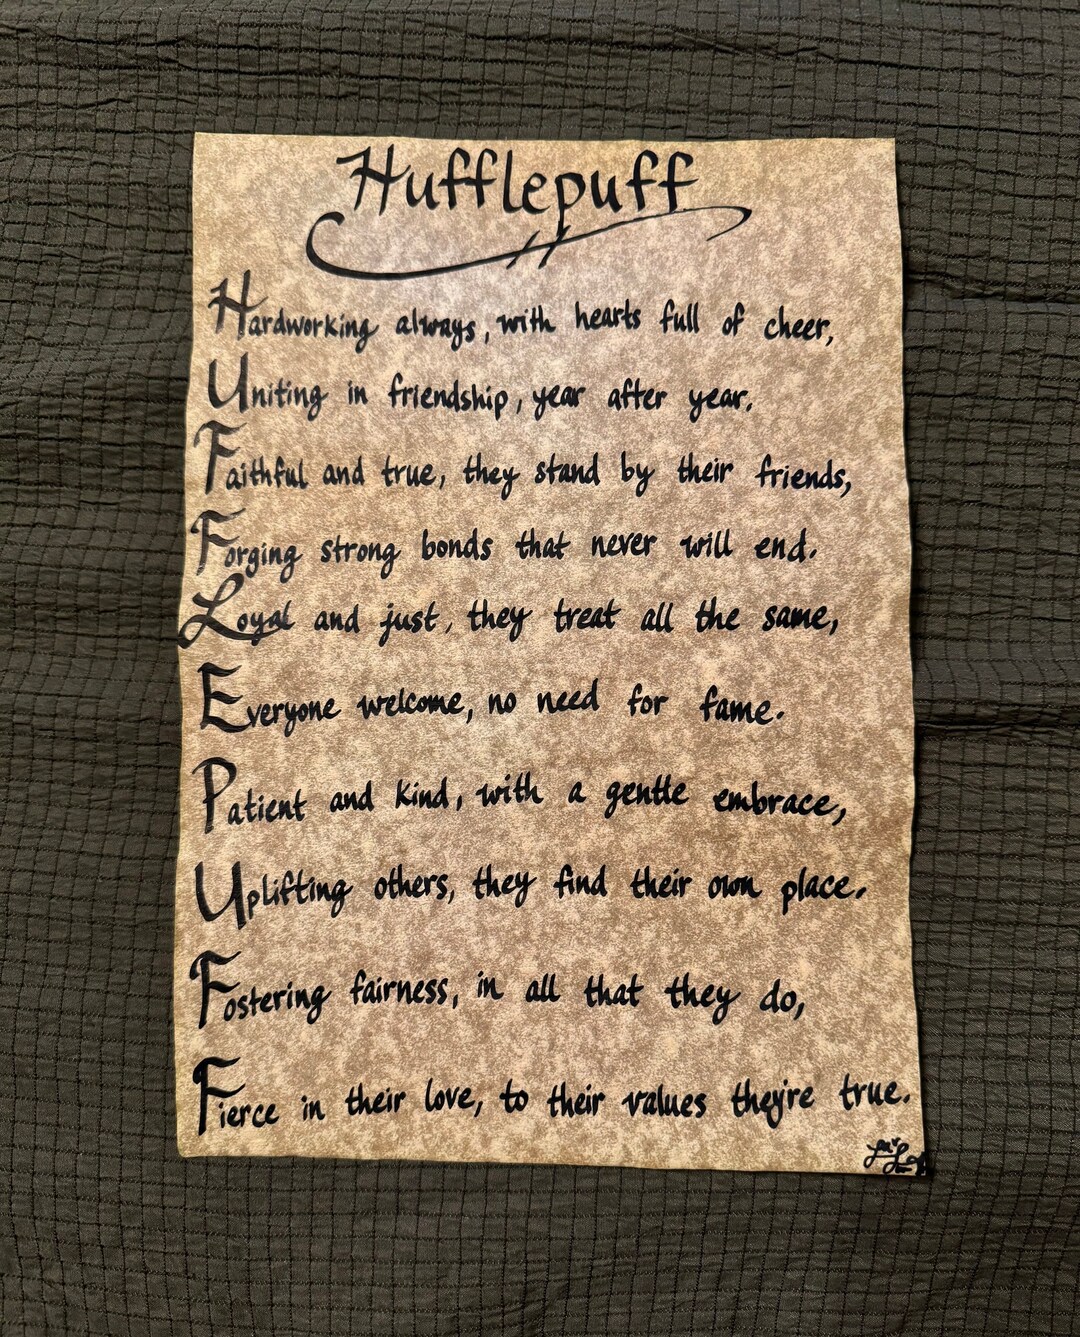 Hufflepuff
Hardworking always, with hearts full of cheer,
Uniting in friendship, year after year.
Faithful and true, they stand by their friends,
Forging strong bonds that never will end.
Loyal and just, they treat all the same,
Everyone welcome, no need for fame.
Patient and kind, with a gentle embrace,
Uplifting others, they find their own place.
Fostering fairness, in all that they do,
Fierce in their love, to their values they're true.